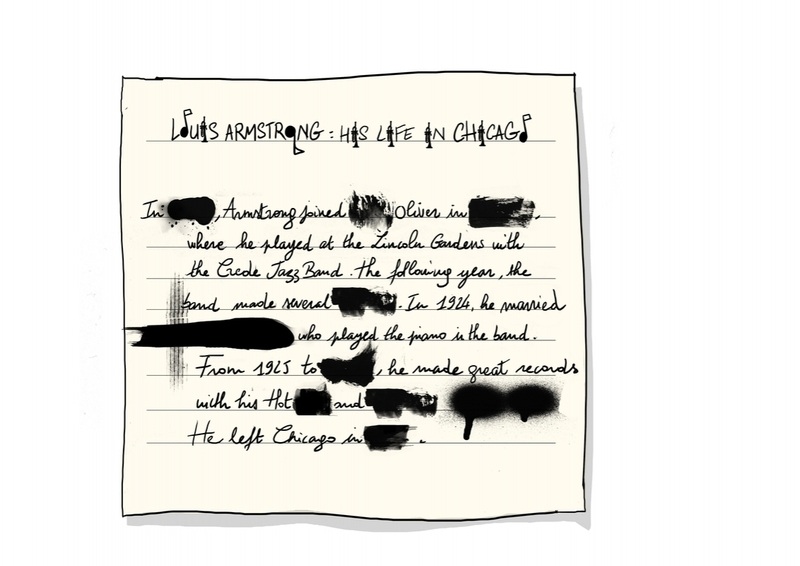 LOUIS ARMSTRONG : HIS LIFE IN CHICAGO
In , Armstrong joined Oliver in ,
where he played at the Lincoln Gardens with
the Creole Jazz Band. The following year, the
band made several . In 1924, he married
who played the piano in the band.
From 1925 to , he made great records
with his Hot and
He left Chicago in .